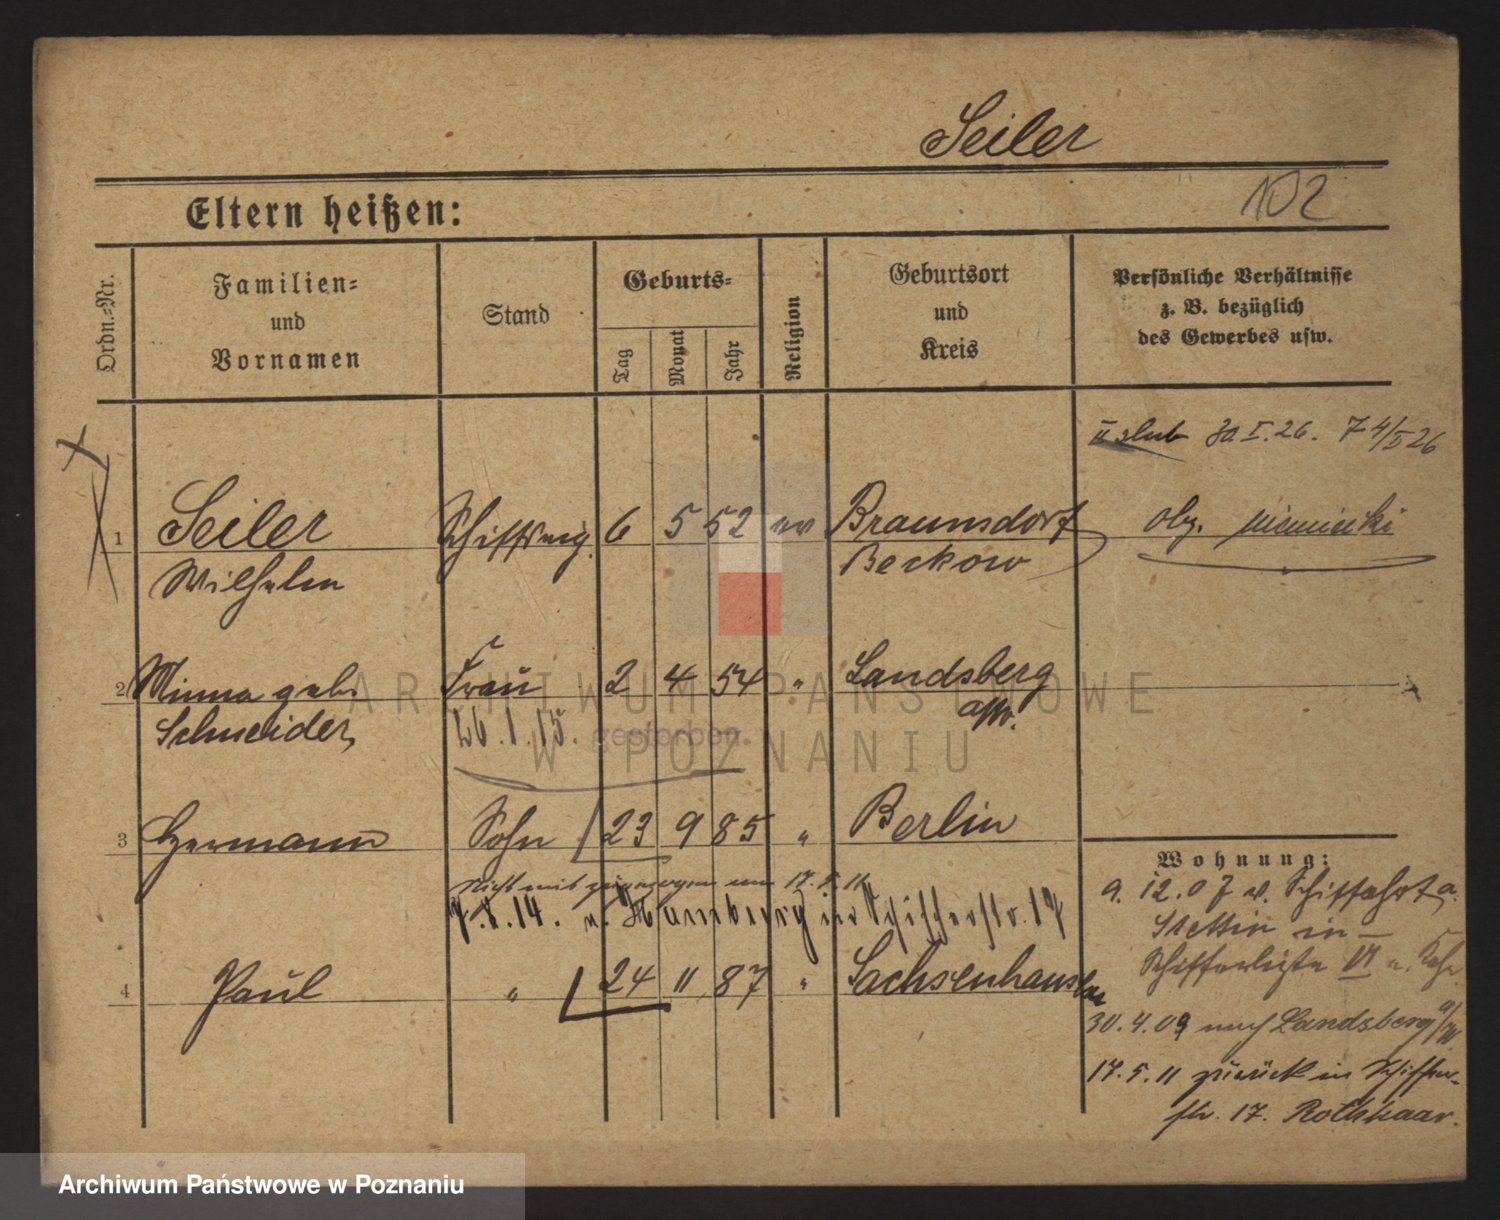 Seiler
Eltern heißen:
102
Ordn.-Nr.
Familien-
und
Vornamen
Stand
Geburts-
Tag
Monat
Jahr
Religion
Geburtsort
und
Kreis
Persönliche Verhältnisse
z. B. bezüglich
des Gewerbes usw.
II ślub 30.I.26. 7 4/I 26
1 Seiler 6 5 52 ev Braunsdorf
Wilhelm Beskow
oby. niemiecki
2 Minna geb. Frau 2 4 54 " Landsberg
Schneider a/W.
26.1.15. gestorben.
3 Hermann Sohn 23 9 85 " Berlin
Nicht mit zugezogen am 17.5.11
7.8.14. n. Hamburg in Schifferstr. 17
4 Paul " 24 11 87 " Sachsenhausen
Wohnung:
9. 12. 07 v. Schiffahrt a.
Stettin in
VI
30.4.09 nach Landsberg a/W.
17.5.11 zurück in Schiffer-
str. 17. Rothkaar.
ARCHIWUM PAŃSTWOWE
W POZNANIU
Archiwum Państwowe w Poznaniu